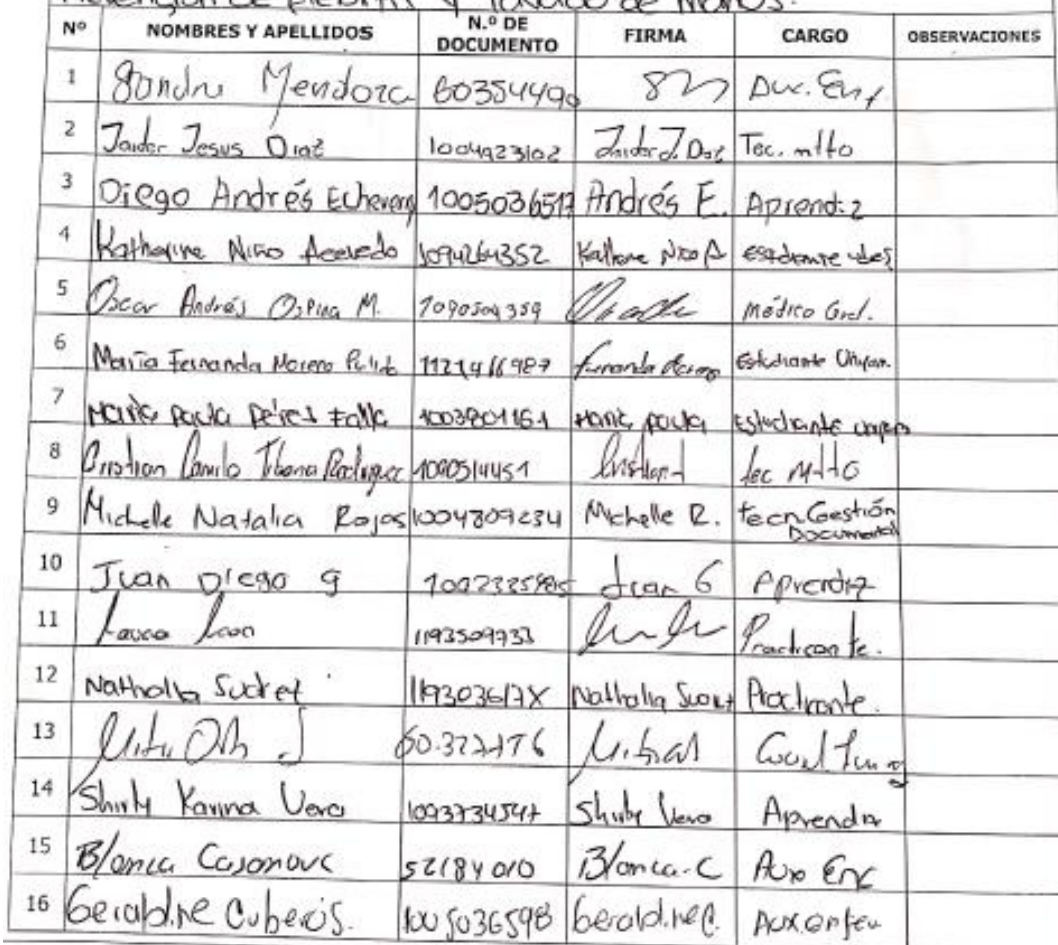 Prevención de flebitis y lavado de manos.
Nº NOMBRES Y APELLIDOS N.º DE DOCUMENTO FIRMA CARGO OBSERVACIONES
1 Sandra Mendoza 60354490 Aux. Enf
2 Jaider Jesus Diaz 1004923102 Jaider J. Diaz Tec. mtto
3 Diego Andrés Echeverry 1005036517 Andrés E. Aprendiz
4 Katherine Niño Acevedo 1094264352 Katherine Niño A Estudiante udes
5 Oscar Andrés Ospina M. 1090504359 Médico Gral.
6 Maria Fernanda Moreno Pulido 1121416987 Fernanda Moreno Estudiante
7 Maria paula Perez Falla 1003801161 Maria paula Estudiante
8 Cristian Camilo Rodriguez 1090514451 Cristian tec Mtto
9 Michelle Natalia Rojas 1004809234 Michelle R. tecn Gestión Documental
10 Juan Diego g Juan G Aprendiz
11 1193509733 Practicante.
12 Nathalia Suarez Nathalia Suarez Practicante.
13
14 Shirly Karina Vera 1093734547 Shirly Vera Aprendiz
15 Blanca Casanova 52184010 Blanca.C Aux Enf
16 Geraldine Cuberos. 1005036598 Geraldine C. Aux enfer